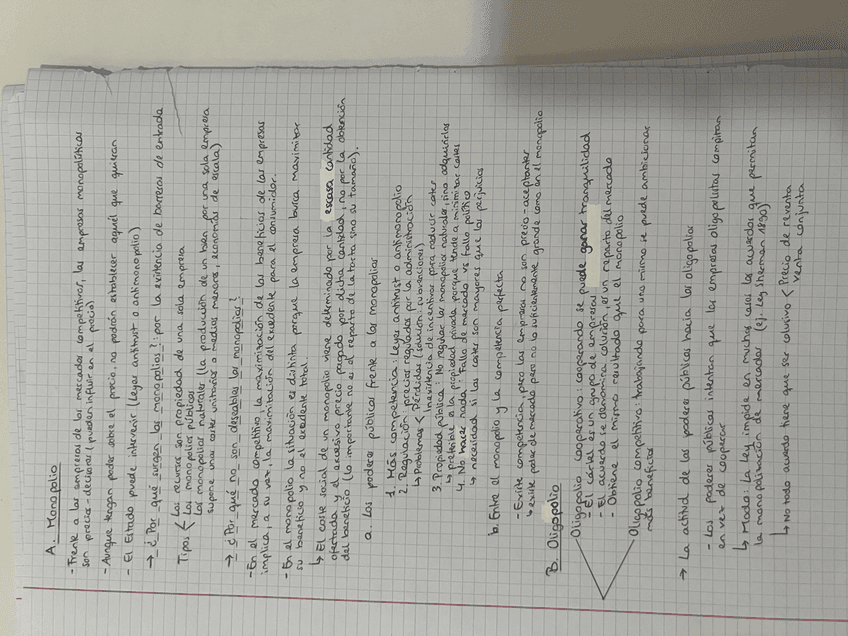 A. Monopolio
- Frente a las empresas de los mercados competitivos, las empresas monopolísticas
son precios-decisoras (pueden influir en el precio)
- Aunque tengan poder sobre el precio, no podrán establecer aquél que quieran
- El Estado puede intervenir (leyes antitrust o antimonopolio)
→ ¿Por qué surgen los monopolios?: por la existencia de barreras de entrada
Tipos < Los recursos son propiedad de una sola empresa
Los monopolios públicos
Los monopolios naturales (la producción de un bien por una sola empresa
supone unos costes unitarios o medios menores, economías de escala)
→ ¿Por qué no son deseables los monopolios?
- En el mercado competitivo, la maximización de los beneficios de las empresas
implica, a su vez, la maximización del excedente para el consumidor.
- En el monopolio la situación es distinta porque la empresa busca maximizar
su beneficio y no el excedente total.
↳ El coste social de un monopolio viene determinado por la escasa cantidad
ofertada y el excesivo precio pagado por dicha cantidad, no por la obtención
del beneficio (lo importante no es el reparto de la tarta sino su tamaño).
a. Los poderes públicos frente a los monopolios
1. Más competencia: Leyes antitrust o antimonopolio
2. Regulación: precios regulados por la administración
↳ Problemas < Pérdidas (solución: subvenciones)
Inexistencia de incentivos para reducir costes
3. Propiedad pública: No regular los monopolios naturales, sino adquirirlos
↳ preferible a la propiedad privada porque tiende a minimizar costes
4. No hacer nada: Fallo de mercado vs fallo político
↳ necesidad si los costes son mayores que los perjuicios
b. Entre el monopolio y la competencia perfecta
- Existe competencia, pero las empresas no son precio-aceptantes
↳ existe poder de mercado pero no lo suficientemente grande como en el monopolio
B. Oligopolio
Oligopolio cooperativo: cooperando se puede ganar tranquilidad
- El cártel es un grupo de empresas
- El acuerdo se denomina colusión, es un reparto del mercado
- Obtiene el mismo resultado que el monopolio
Oligopolio competitivo: trabajando para uno mismo se puede ambicionar
más beneficios
→ La actitud de los poderes públicos hacia los oligopolios
- Los poderes públicos intentan que las empresas oligopolistas compitan
en vez de cooperar
↳ Modo: La ley impide en muchos casos los acuerdos que permitan
la monopolización de mercados (ej. Ley Sherman 1890)
↳ No todo acuerdo tiene que ser colusivo < Precio de reventa
Venta conjunta